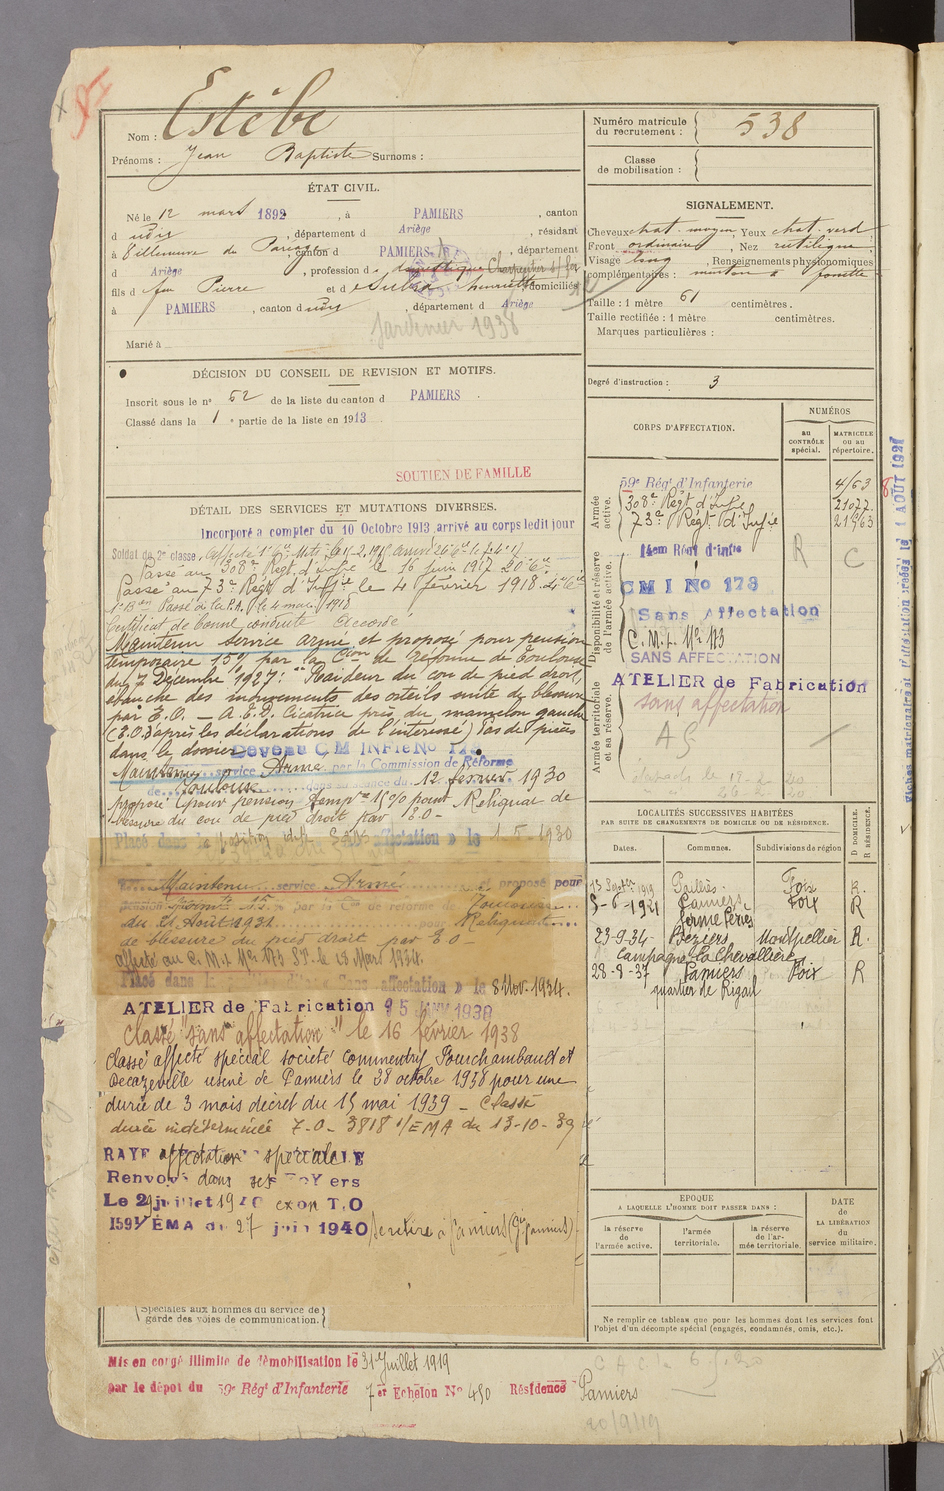 Nom : Estèbe
Prénoms : Jean Baptiste Surnoms :
ÉTAT CIVIL.
Né le 12 mars 1892, à PAMIERS, canton
d udit, département d Ariège, résidant
à Villeneuve du Pareage, canton d PAMIERS, département
d Ariège, profession d domestique Charpentier s/ fer
fils d feu Pierre et d Henriette, domiciliés
à PAMIERS, canton dudit, département d Ariège
Jardinier 1938
Marié à
DÉCISION DU CONSEIL DE REVISION ET MOTIFS.
Inscrit sous le n° 62 de la liste du canton d PAMIERS.
Classé dans la 1e partie de la liste en 1913
SOUTIEN DE FAMILLE
DÉTAIL DES SERVICES ET MUTATIONS DIVERSES.
Incorporé a compter du 10 Octobre 1913 arrivé au corps ledit jour
Soldat de 2e classe.
Passé au 308e Régt. d'Infie le 16 juin 1917 20e Cie
Passé au 73e Régt d'Infie le 4 février 1918.
Certificat de bonne conduite Accordé
Maintenu service armé et proposé pour pension
temporaire 15% par la Cion de Réforme de Toulouse
du 7 Décembre 1927: "Raideur du cou de pied droit,
ébauche des mouvements des orteils suite de blessure
par E.O. — A.E.D. Cicatrice près du mamelon gauche
(E.O. d'après les déclarations de l'intéressé) Pas de pièces
dans le dossier
Devenu C M INFie No 173
Maintenu service Armé par la Commission de Réforme
de Toulouse dans sa séance du 12 février 1930
proposé pour pension tempre 15% pour Reliquat de
blessure du cou de pied droit par E.O-
Placé dans la position dite Sans affectation » le 1 5 1930
Maintenu service Armé et proposé pour
pension permte 15% par la Cion de réforme de Toulouse
du 21 Août 1931 pour Reliquat
de blessure du pied droit par EO-
affecté au C. M. I. No 173 le 18 Mars 1934.
Placé dans la position dite Sans affectation » le 8 Nov. 1934.
ATELIER de Fabrication 25 JANV 1938
Classé "sans affectation" le 16 février 1938
Classé affecté spécial société Commentry Fourchambault et
Decazeville usine de Pamiers le 28 octobre 1938 pour une
durée de 3 mois décret du 15 mai 1939 - Classé
durée indéterminée 7-0- 3818 1/EMA du 13-10-39
RAYE affectation spéciale
Renvoyé dans ses FOYers
Le 29 juillet 1940 exon T.O
1591/EMA du 27 juin 1940 se retire à Pamiers
Spéciales aux hommes du service de
garde des voies de communication.
Mis en congé illimité de démobilisation le 31 Juillet 1919
par le dépot du 59e Régt d'Infanterie 7e Echelon No 450 Résidence Pamiers
20/9/19
Numéro matricule
du recrutement : 538
Classe
de mobilisation :
SIGNALEMENT.
Cheveux chat. moyen, Yeux chat. verd.
Front ordinaire, Nez rectiligne
Visage long, Renseignements physionomiques
complémentaires : menton à fossette
Taille : 1 mètre 61 centimètres.
Taille rectifiée : 1 mètre centimètres.
Marques particulières :
Degré d'instruction : 3
CORPS D'AFFECTATION.
NUMÉROS
au CONTRÔLE spécial.
MATRICULE ou au répertoire.
Armée active.
59e Régt d'Infanterie 4163
308e Régt d'Infie 21077
73e Régt d'Infie 21963
Disponibilité et réserve de l'armée active.
14em Régt d'infie R C
C M I No 173
Sans Affectation
C. M. I. No 173
SANS AFFECTATION
Armée territoriale et sa réserve.
ATELIER de Fabrication
sans affectation
LOCALITÉS SUCCESSIVES HABITÉES
PAR SUITE DE CHANGEMENTS DE DOMICILE OU DE RÉSIDENCE.
Dates. Communes. Subdivisions de région D DOMICILE. R RÉSIDENCE.
13 Septbre 1919 Foix R.
5-6-1921 Pamiers Foix R
23-9-34- Béziers Montpellier R.
Campagne La Chevallière
28-8-37 Pamiers Foix R
quartier de Rigail
EPOQUE
A LAQUELLE L'HOMME DOIT PASSER DANS :
la réserve de l'armée active.
l'armée territoriale.
la réserve de l'armée territoriale.
DATE DE LA LIBÉRATION du service militaire.
Ne remplir ce tableau que pour les hommes dont les services font
l'objet d'un décompte spécial (engagés, condamnés, omis, etc.).